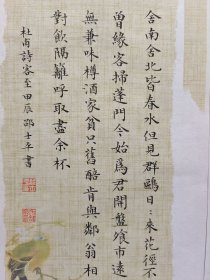 舍南舍北皆春水但見群鷗日〻来花徑不
曾緣客掃蓬門今始為君開盤飧市遠
無兼味樽酒家貧只舊醅肯與鄰翁相
對飲隔籬呼取盡余杯
杜甫詩客至甲辰邵士平書